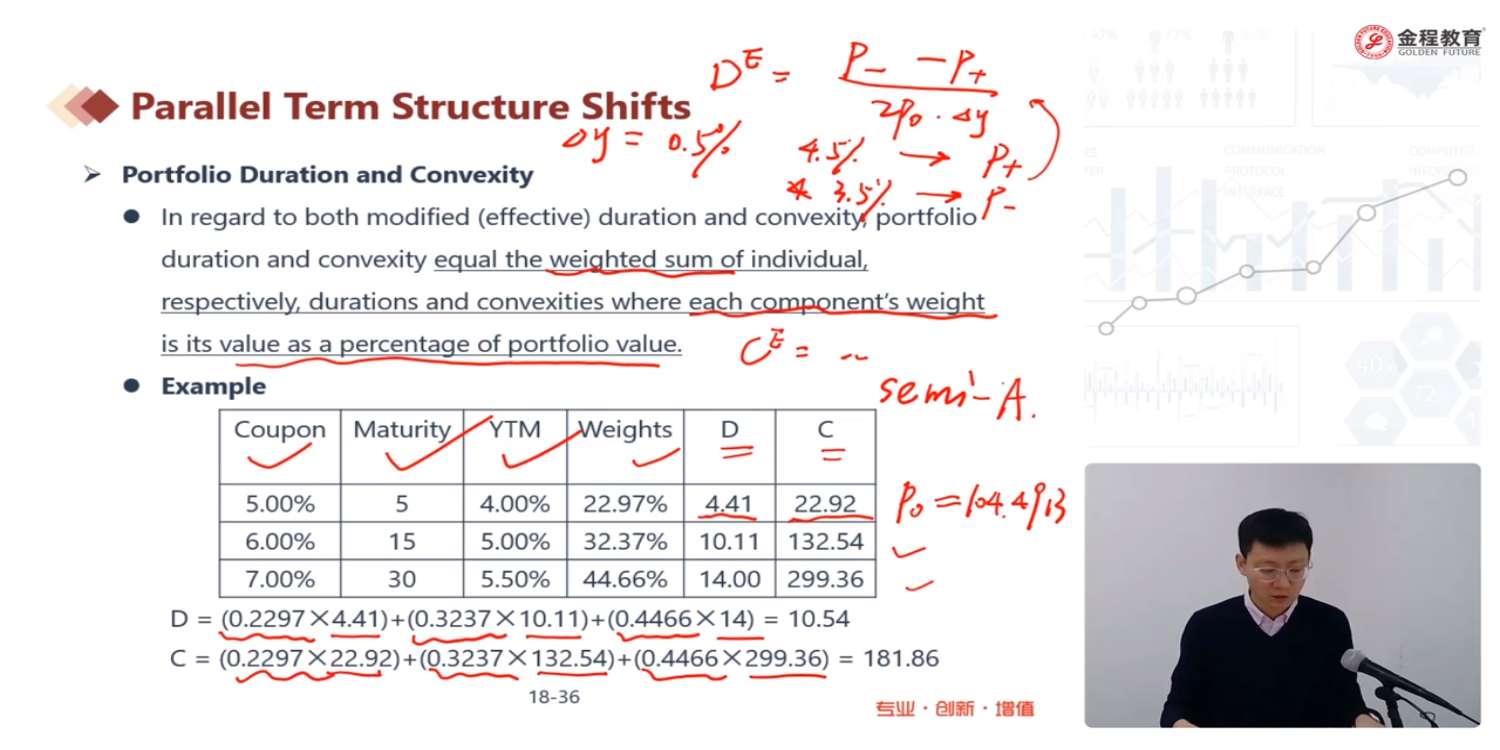 金程教育
GOLDEN FUTURE
D^E = P₋ - P₊ / 2P₀ · Δy
Parallel Term Structure Shifts
Δy = 0.5%
4.5% → P₊
3.5% → P₋
➢ Portfolio Duration and Convexity
● In regard to both modified (effective) duration and convexity, portfolio
duration and convexity equal the weighted sum of individual,
respectively, durations and convexities where each component's weight
is its value as a percentage of portfolio value.
C^E = ~
semi-A.
● Example
Coupon Maturity YTM Weights D C
5.00% 5 4.00% 22.97% 4.41 22.92
P₀ = 104.4913
6.00% 15 5.00% 32.37% 10.11 132.54
7.00% 30 5.50% 44.66% 14.00 299.36
D = (0.2297×4.41)+(0.3237×10.11)+(0.4466×14) = 10.54
C = (0.2297×22.92)+(0.3237×132.54)+(0.4466×299.36) = 181.86
18-36
专业·创新·增值